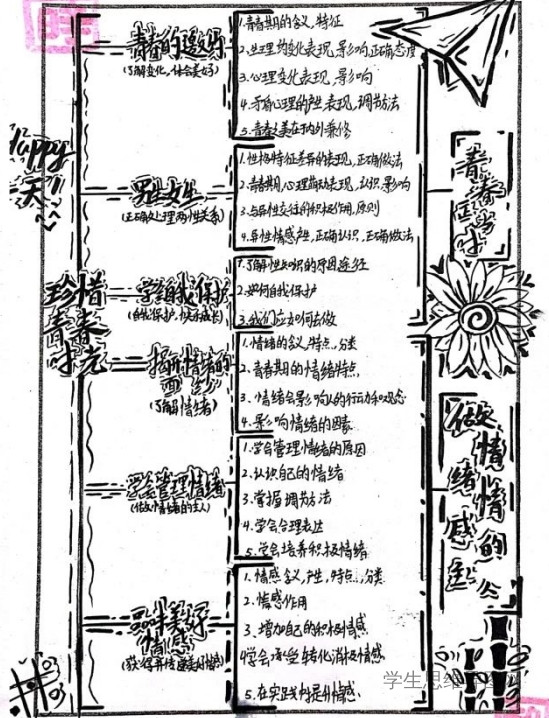 Happy
一天!!
珍惜
青春
时光
青春的邀约
(了解变化,体会美好)
1.青春期的含义,特征
2.生理变化表现,影响,正确态度
3.心理变化表现,影响
4.矛盾心理的产生,表现,调节方法
5.青春之美在于内外兼修
男生女生
(正确处理两性关系)
1.性格特征差异的表现,正确做法
2.青春期心理萌动表现,认识,影响
3.与异性交往的积极作用,原则
4.异性情感产生,正确认识,正确做法
学会自我保护
(自我保护,快乐成长)
1.了解性知识的原因途径
2.如何自我保护
3.我们应如何去做
揭开情绪的
面纱
(了解情绪)
1.情绪的含义,特点,分类
2.青春期的情绪特点
3.情绪会影响人的行动和观念
4.影响情绪的因素
学会管理情绪
(做情绪的主人)
1.学会管理情绪的原因
2.认识自己的情绪
3.掌握调节方法
4.学会合理表达
5.学会培养积极情绪
品味美好
情感
(获得并传递美好情感)
1.情感含义,产生,特点,分类
2.情感作用
3.增加自己的积极情感
4.学会承受转化消极情感
5.在实践中提升情感
青春正当时
做情绪情感的主人
学生思维导图网